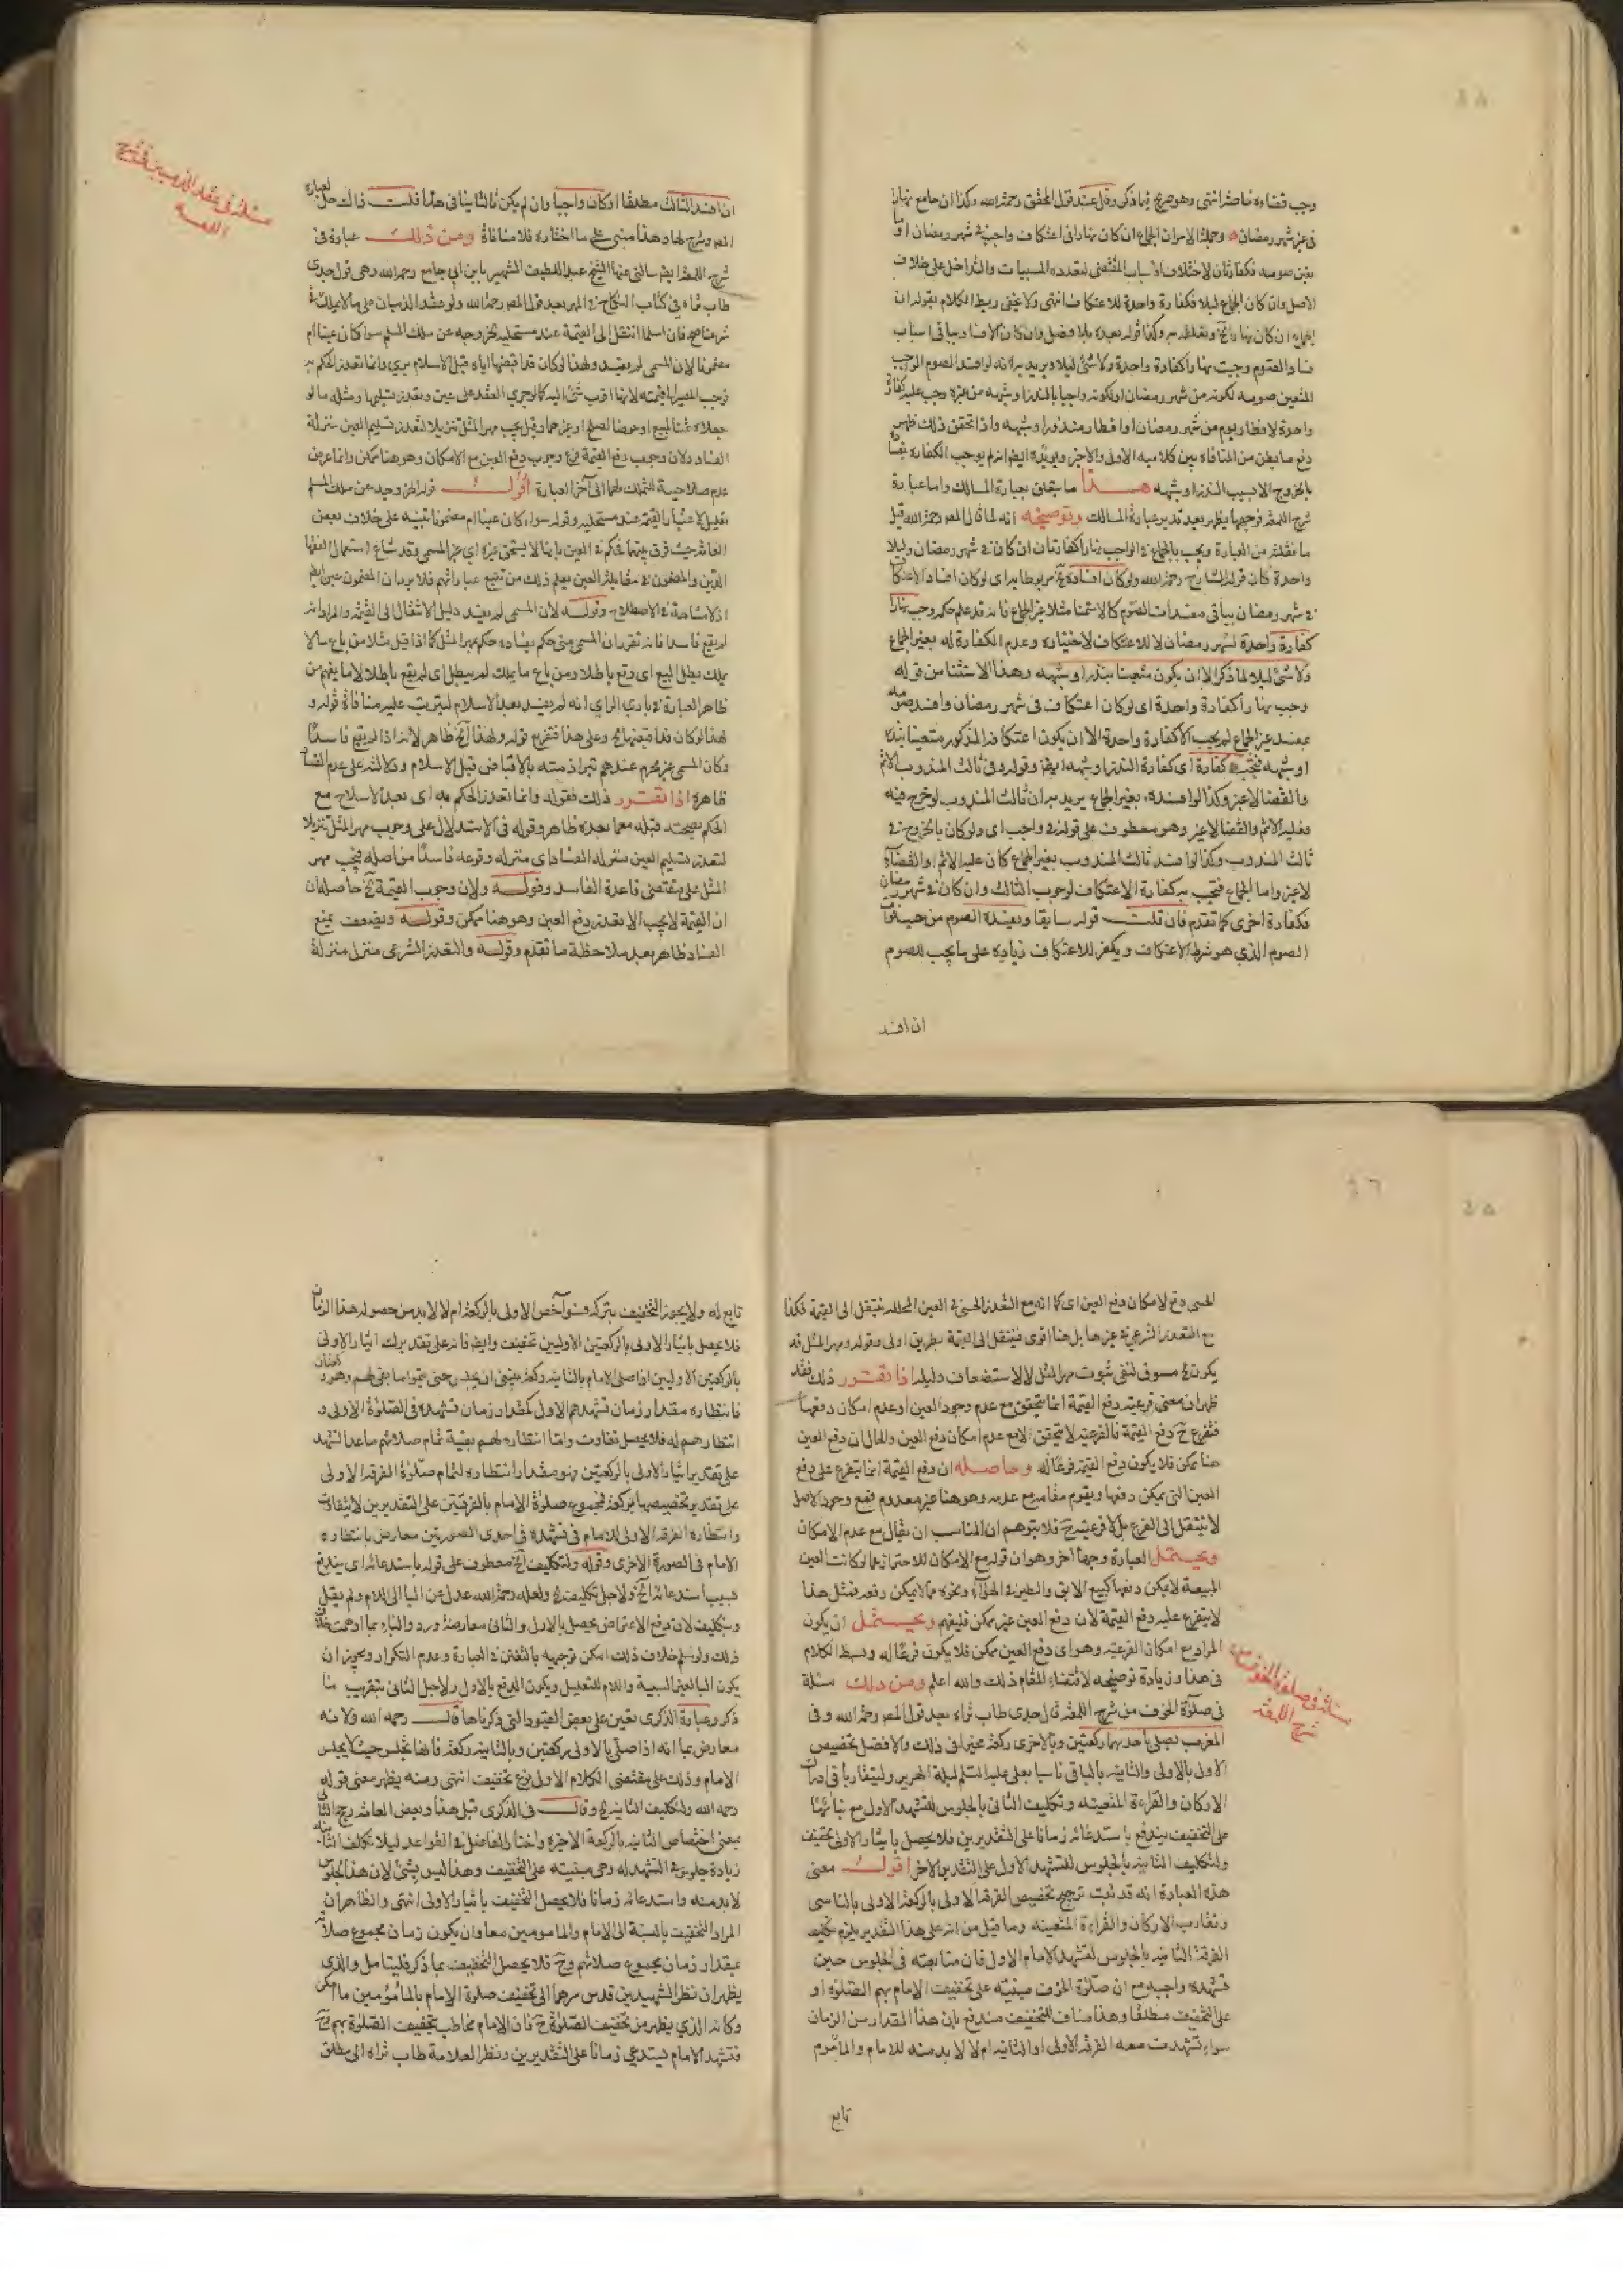 وجب قضاءه خاصة انتهى وهو صريح فيما ذكر وقل عند قول المحقق رحمه الله وكذا ان جامع نهارا
في غير شهر رمضان وجملة الامر ان الجماع ان كان نهارا في اعتكاف واجب في شهر رمضان او ما
تعين صومه فكفارتان لاختلاف الاسباب المقتضى لتعدد المسببات والتداخل على خلاف
الاصل وان كان الجماع ليلا فكفارة واحدة للاعتكاف انتهى ولا يخفى ربط الكلام بقوله ان
الجماع ان كان نهارا الخ وكذا قوله بعده بلا فصل وان كان الافساد بباقي اسباب
فساد الصوم وجبت نهارا كفارة واحدة ولا شئ ليلا ويريد به انه لو افسد الصوم الواجب
المتعين صومه لكونه من شهر رمضان او لكونه واجبا بالنذر او شبهه من غيره وجب عليه كفارة
واحدة لافطار يوم من شهر رمضان او افطار منذور او شبهه واذا تحقق ذلك ظهر
دفع ما يظن من المنافاة بين كلاميه الاول والاخر ويؤيده ايضا انه لم يوجب الكفارة
بالخروج الا بسبب النذر او شبهه هذا ما يتعلق بعبارة المسالك واما عبارة
شرح اللمعة فتوجيهها يظهر بعد تدبر عبارة المسالك وتوضيحه انه لما قال المص رحمه الله قبل
ما نقلته من العبارة ويجب بالجماع في الواجب نهارا كفارتان ان كان في شهر رمضان وليلا
واحدة كان قول الشارح رحمه الله ولو كان افساده الخ مربوطا به اي لو كان افساد الاعتكاف
في شهر رمضان بباقي مفسدات الصوم كالاستمنا مثلا غير الجماع فانه قد علم حكمه وجب نهارا
كفارة واحدة لشهر رمضان لا للاعتكاف لاختياره وعدم الكفارة له بغير الجماع
ولا شئ ليلا لما ذكر الا ان يكون متعينا بنذر او شبهه وهذا الاستثنا من قوله
وجب نهارا كفارة واحدة اي لو كان اعتكاف في شهر رمضان وافسد صومه
بمفسد غير الجماع لم يجب الا كفارة واحدة الا ان يكون اعتكافه المذكور متعينا بنذر
او شبهه فتجب كفارة اي كفارة النذر او شبهه ايضا وقوله وفي ثالث المندوب الاثم
والقضا لا غير وكذا لو افسده بغير الجماع يريد به ان ثالث المندوب لو خرج فيه
فعليه الاثم والقضا لا غير وهو معطوف على قوله في واجب اي ولو كان بالخروج في
ثالث المندوب وكذا لو افسد ثالث المندوب بغير الجماع كان عليه الاثم والقضاء
لا غير واما الجماع فتجب به كفارة الاعتكاف لوجوب الثالث وان كان في شهر رمضان
فكفارة اخرى كما تقدم فان قلت قوله سابقا ويفسده الصوم من حيث فوات
الصوم الذي هو شرط الاعتكاف ويكفر للاعتكاف زيادة على ما يجب للصوم
ان افسد
ان افسد الثالث مطلقا او كان واجبا وان لم يكن ثالثا ينافي هذا قلت ذاك حل لعبارة
المص وشرح لها وهذا مبني على ما اختاره فلا منافاة ومن ذلك عبارة في
شرح اللمعة ايضا سالني عنها الشيخ عبد اللطيف الشهير بابن ابي جامع رحمه الله وهي قول جدى
طاب ثراه في كتاب النكاح في المهر بعد قول المص رحمه الله ولو عقد الذميان على ما لا يملك في
شرعنا صح فان اسلما انتقل الى القيمة عند مستحليه لخروجه عن ملك المسلم سوا كان عينا ام
مضمونا لان المسمى لم يفسد ولهذا لو كان قد اقبضها اياه قبل الاسلام بري وانما تعذر الحكم به
فوجب المصير الى قيمته لانها اقرب شئ اليه كما لو جرى العقد على عين وتعذر تسليمها ومثله ما لو
جعلاه ثمنا لمبيع او عوضا لصلح او غيرهما وقيل يجب مهر المثل تنزيلا لتعذر تسليم العين منزلة
الفساد ولان وجوب دفع القيمة فرع وجوب دفع العين مع الامكان وهو هنا ممكن وانما عرض
عدم صلاحية للتملك لهما الى آخر العبارة أقول قوله لخروجه عن ملك المسلم
تعليل لاعتبار القيمة عند مستحليه وقوله سواء كان عينا ام مضمونا تنبيه على خلاف بعض
العامة حيث فرق بينهما فحكم في العين بانها لا يستحق غيره اي غير المسمى وقد شاع استعمال الفقها
الدين والمضمون في مقابلة العين يعلم ذلك من تتبع عباراتهم فلا يرد ان المضمون عين ايضا
اذ لا مشاحة في الاصطلاح وقوله لان المسمى لم يفسد دليل الانتقال الى القيمة والمراد انه
لم يقع فاسدا فانه تقرر ان المسمى متى حكم بفساده حكم بمهر المثل كما اذا قيل مثلا من باع مالا
يملك بطل البيع اي وقع باطلا ومن باع ما يملك لم يبطل اي لم يقع باطلا لا ما يفهم من
ظاهر العبارة في بادي الراي انه لم يفسد بعد الاسلام ليترتب عليه منافاة قوله و
لهذا لو كان قد اقبضها الخ وعلى هذا فتفريع قوله ولهذا الخ ظاهر لانه اذا لم يقع فاسدا
وكان المسمى غير محرم عندهم تبرا ذمته بالاقباض قبل الاسلام ودلالته على عدم الفساد
ظاهرة اذا تقرر ذلك فقوله وانما تعذر الحكم به اي بعد الاسلام مع
الحكم بصحته قبله معما بعده ظاهر وقوله في الاستدلال على وجوب مهر المثل تنزيلا
لتعذر تسليم العين منزلة الفساد اي منزلة وقوعه فاسدا من اصله فيجب مهر
المثل على مقتضى قاعدة الفاسد وقوله ولان وجوب القيمة الخ حاصله ان
ان القيمة لا يجب الا بتعذر دفع العين وهو هنا ممكن وقوله ويضعف بمنع
الفساد ظاهر بعد ملاحظة ما تقدم وقوله والتعذر الشرعي منزل منزلة
مسئلة في عقد الذميين في شرح
اللمعة
الحسي دفع لامكان دفع العين اي كما انه مع التعذر الحسي في العين المحللة ينتقل الى القيمة فكذا
مع التعذر الشرعي في غيرها بل هنا اقوى فينتقل الى القيمة بطريق اولى وقوله ومهر المثل قد
يكون مسوق لنفي ثبوت مهر المثل لا لاستضعاف دليله اذا تقرر ذلك فقد
ظهر ان معنى فرعية دفع القيمة انما يتحقق مع عدم وجود العين او عدم امكان دفعها
فتفرع ح دفع القيمة فالفرعية لا تتحقق الا مع عدم امكان دفع العين والحال ان دفع العين
هنا ممكن فلا يكون دفع القيمة فرعا له وحاصله ان دفع القيمة انما يتفرع على دفع
العين التي يمكن دفعها ويقوم مقامه مع عدمه وهو هنا غير معدوم فمع وجود الاصل
لا ينتقل الى الفرع بل لا فرعية ح فلا يتوهم ان المناسب ان يقال مع عدم الامكان
ويحتمل العبارة وجها اخر وهو ان قوله مع الامكان للاحتراز عما لو كانت العين
المبيعة لا يمكن دفعها كبيع الابق والطير في الهواء ونحوه مما لا يمكن دفعه فمثل هذا
لا يتفرع عليه دفع القيمة لان دفع العين غير ممكن فليفهم ويحتمل ان يكون
المراد مع امكان الفرعية وهو اي دفع العين ممكن فلا يكون فرعا له وبسط الكلام
في هذا وزيادة توضيحه لاقتضاء المقام ذلك والله اعلم ومن ذلك مسئلة
في صلوة الخوف من شرح اللمعة قال جدى طاب ثراه بعد قول المص رحمه الله وفي
المغرب يصلي باحديهما ركعتين وبالاخرى ركعة مخيرا في ذلك والافضل تخصيص
الاول بالاولى والثانية بالباقي تاسيا بعلي عليه السلام ليلة الهرير وليتقاربا في ادراك
الاركان والقراءة المتعينة وتكليف الثاني بالجلوس للتشهد الاول مع بنائها
على التخفيف يندفع باستدعائه زمانا على التقديرين فلا يحصل بايثار الاولى تخفيف
ولتكليف الثانية بالجلوس للتشهد الاول على التقدير الاخر اقول معنى
هذه العبارة انه قد ثبت ترجيح تخصيص الفرقة الاولى بالركعة الاولى بالتاسي
وتقارب الاركان والقراءة المتعينة وما قيل من انه على هذا التقدير يلزم تكليف
الفرقة الثانية بالجلوس لتشهد الامام الاول فان متابعته في الجلوس حين
تشهده واجبة مع ان صلوة الخوف مبنية على تخفيف الامام بهم الصلوة او
على التخفيف مطلقا وهذا مناف للتخفيف مندفع بان هذا المقدار من الزمان
سواء تشهدت معه الفرقة الاولى او الثانية ام لا لا بد منه للامام والماموم
تابع
مسئلة في صلوة الخوف من
شرح اللمعة
تابع له ولا يجوز التخفيف بتركه فسوآ خص الاولى بالركعة ام لا لا بد من حصول هذا الزمان
فلا يحصل بايثار الاولى بالركعتين الاوليين تخفيف وايضا فانه على تقدير ايثار الاولى
بالركعتين الاوليين اذا صلى الامام بالثانية ركعة ينبغي ان يجلس حتى يتموا ما بقي لهم وهو ركعتان
فانتظاره مقدار زمان تشهدهم الاول كمقدار زمان تشهده في الصلوة الاولى و
انتظارهم له فلا يحصل تفاوت واما انتظاره لهم بقية تمام صلاتهم ما عدا التشهد
على تقدير ايثار الاولى بالركعتين فهو مقدار انتظاره لتمام صلوة الفرقة الاولى
على تقدير تخصيصها بركعة فمجموع صلوة الامام بالفرقتين على التقديرين لا يتفاوت
وانتظار الفرقة الاولى للامام في تشهده في احدى الصورتين معارض بانتظاره
الامام في الصورة الاخرى وقوله ولتكليف الخ معطوف على قوله باستدعائه اي يندفع
بسبب استدعائه الخ ولاجل تكليف الخ ولعله رحمه الله عدل عن البا الى اللام ولم يقل
وبتكليف لان دفع الاعتراض يحصل بالاول والثاني معارضة ورد والباء ربما اوهمت خلاف
ذلك ولو سلم خلاف ذلك امكن توجيهه بالتفنن في العبارة وعدم التكرار ويجوز ان
يكون البا لغير السببية واللام للتعليل ويكون الدفع بالاول ولاجل الثاني بتقريب ما
ذكر وعبارة الذكرى تعين على بعض القيود التي ذكرناها قال رحمه الله ولانه
معارض بما انه اذا صلى بالاولى ركعتين وبالثانية ركعة فانها تجلس حيث لا يجلس
الامام وذلك على مقتضى الكلام الاول نوع تخفيف انتهى ومنه يظهر معنى قوله
رحمه الله ولتكليف الثانية الخ وقال في الذكرى قبل هذا وبعض العامة رجح الثاني
بمعنى اختصاص الثانية بالركعة الاخيرة واختاره الفاضل في القواعد ليلا تكلف الثانية
زيادة جلوس في التشهد له وهي مبنية على التخفيف وهذا ليس بشئ لان هذا الجلوس
لا بد منه واستدعائه زمانا فلا يحصل التخفيف بايثار الاولى انتهى والظاهر ان
المراد التخفيف بالنسبة الى الامام والمامومين معا وان يكون زمان مجموع صلاته
بمقدار زمان مجموع صلاتهم وح فلا يحصل التخفيف بما ذكر فليتامل والذي
يظهر ان نظر الشهيدين قدس سرهما الى تخفيف صلوة الامام بالمأمومين ما امكن
وكانه الذي يظهر من تخفيف الصلوة ح فان الامام مخاطب بتخفيف الصلوة بهم ح
فتشهد الامام يستدعي زمانا على التقديرين ونظر العلامة طاب ثراه الى مطلق